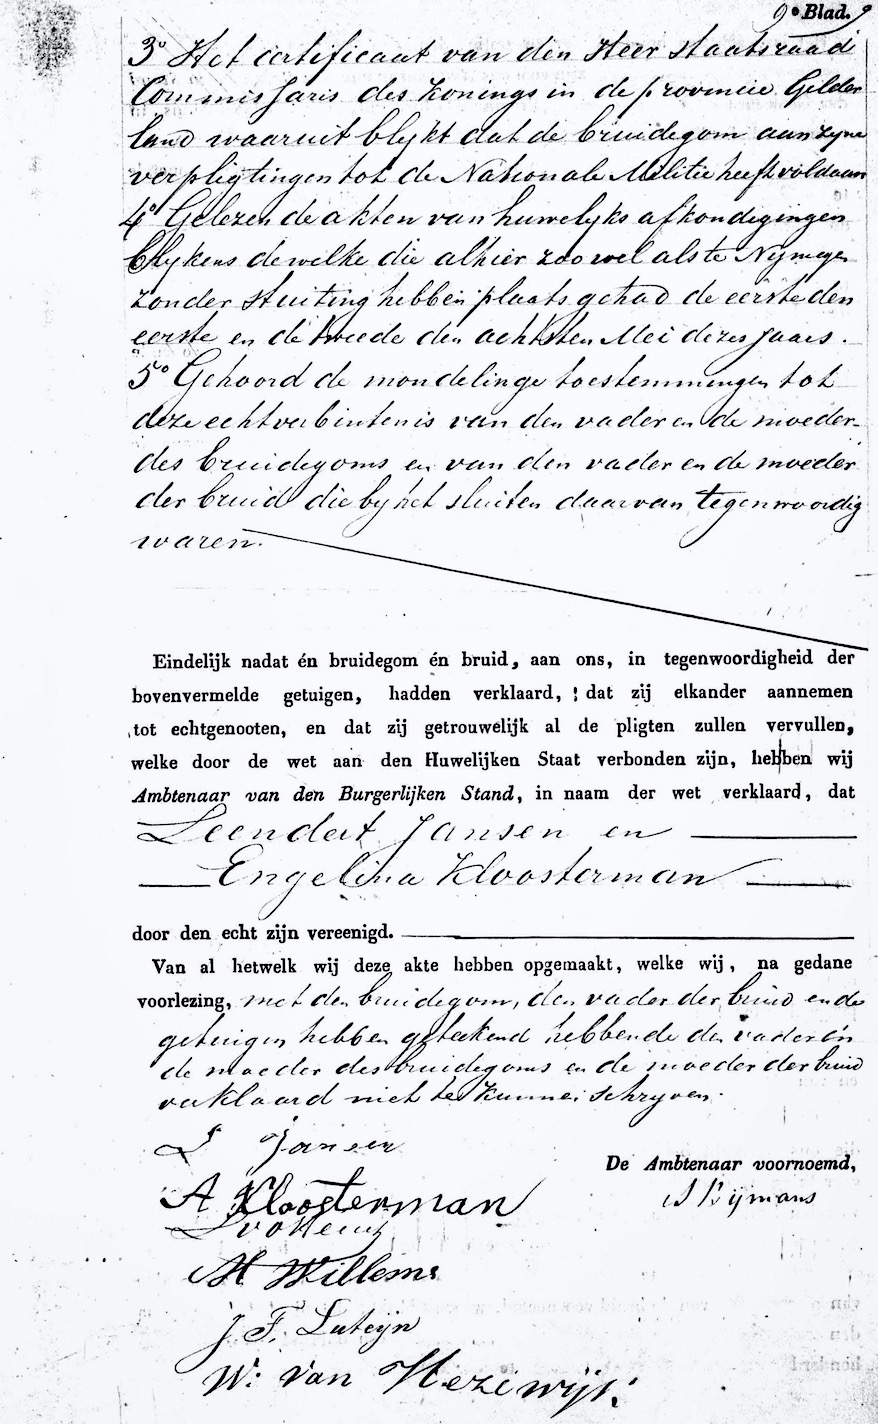 9e Blad.
3o Het certificaat van den Heer Staatsraad
Commissaris des Konings in de provincie Gelder
land waaruit blykt dat de bruidegom aan zyne
verpligtingen tot de Nationale Militie heeft voldaan
4o Gelezen de akten van huwelyks afkondigingen
blykens dewelke die alhier zoo wel als te Nymegen
zonder stuiting hebben plaats gehad de eerste den
eerste en de tweede den achtsten Mei dezes jaars.
5o Gehoord de mondelinge toestemmingen tot
deze echtverbintenis van den vader en de moeder
des bruidegoms en van den vader en de moeder
der bruid die by het sluiten daarvan tegenwoordig
waren.
Eindelijk nadat én bruidegom én bruid, aan ons, in tegenwoordigheid der
bovenvermelde getuigen, hadden verklaard, dat zij elkander aannemen
tot echtgenooten, en dat zij getrouwelijk al de pligten zullen vervullen,
welke door de wet aan den Huwelijken Staat verbonden zijn, hebben wij
Ambtenaar van den Burgerlijken Stand, in naam der wet verklaard, dat
Leendert Jansen en
Engelina Kloosterman
door den echt zijn vereenigd.
Van al hetwelk wij deze akte hebben opgemaakt, welke wij, na gedane
voorlezing, met den bruidegom, den vader der bruid en de
getuigen hebben geteekend hebbende den vader én
de moeder des bruidegoms en de moeder der bruid
verklaard niet te kunnen schryven.
L Jansen
De Ambtenaar voornoemd,
A Kloosterman
Rijmans
M Willems
J. F. Luteijn
W. van Hezewijk.